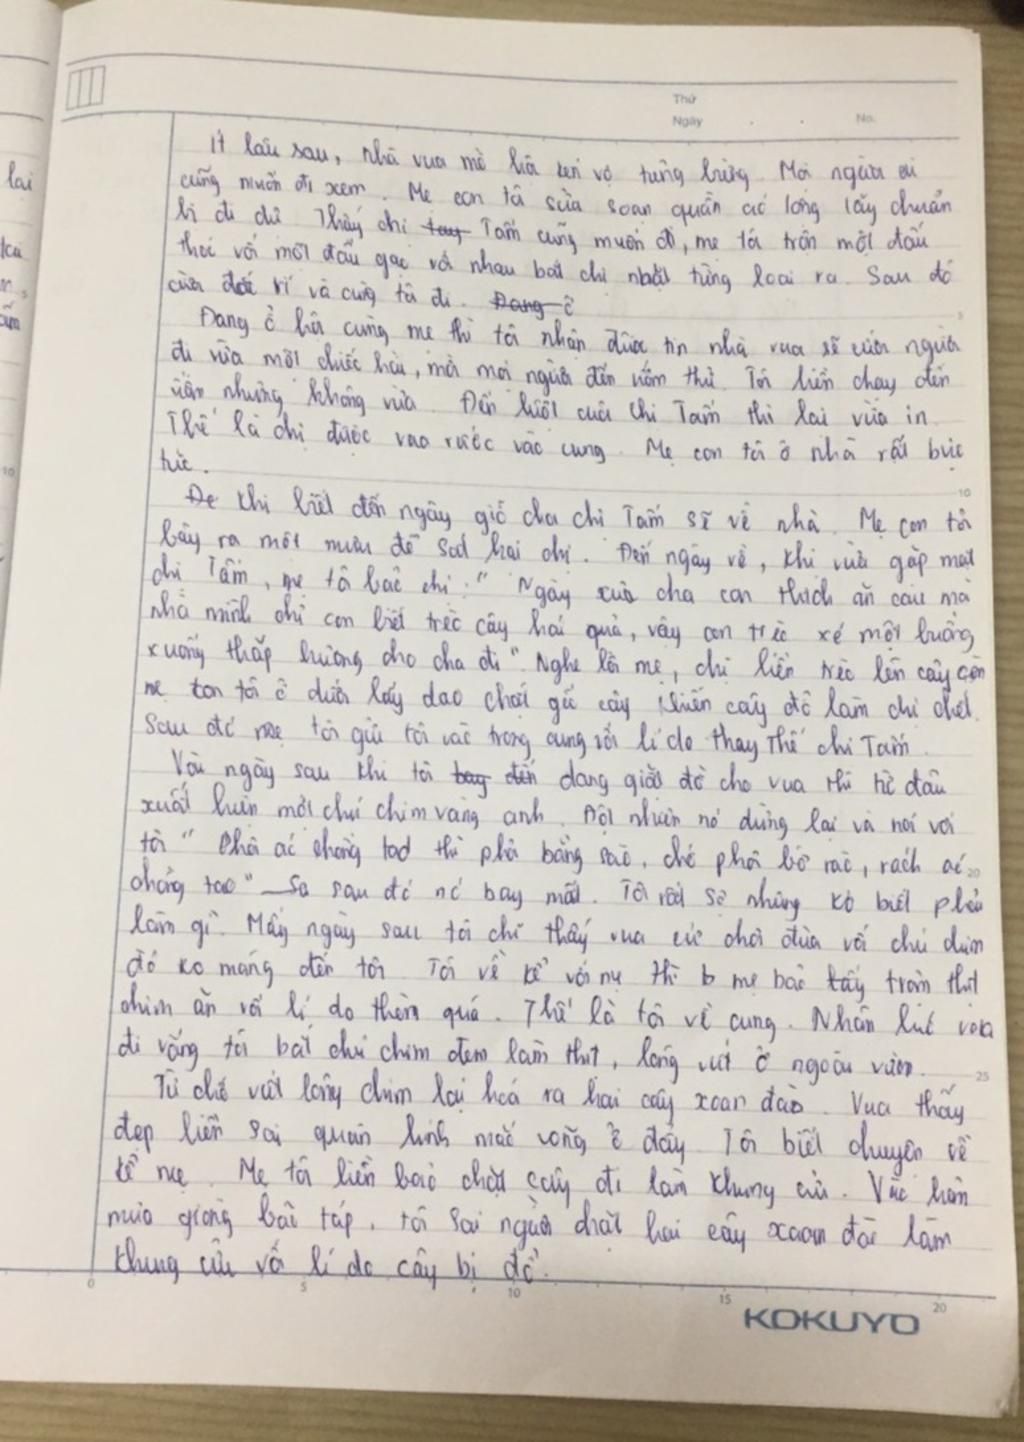 Thứ
Ngày . . No.
Ít lâu sau, nhà vua mở hội kén vợ tưng bừng. Mọi người ai
cũng muốn đi xem. Mẹ con tôi sửa soạn quần áo lộng lẫy chuẩn
bị đi dự. Thấy chị Tấm cũng muốn đi, mẹ tôi trộn một đấu
thóc với một đấu gạo với nhau bắt chị nhặt từng loại ra. Sau đó
cùng tôi đi.
Đang ở hội cùng mẹ thì tôi nhận được tin nhà vua sẽ cưới người
đi vừa một chiếc hài, mời mọi người đến ướm thử. Tôi liền chạy đến
nhưng không vừa. Đến lượt cuối chị Tấm thì lại vừa in.
Thế là chị được rước vào cung. Mẹ con tôi ở nhà rất bực
tức.
khi biết đến ngày giỗ cha chị Tấm sẽ về nhà. Mẹ con tôi
bày ra một mưu để hại chị. Đến ngày về, khi vừa gặp mặt
chị Tấm, mẹ tôi bảo chị: "Ngày xưa cha con thích ăn cau mà
nhà mình chỉ con biết trèo cây hái quả, vậy con trèo xé một buồng
xuống thắp hương cho cha đi". Nghe lời mẹ, chị liền trèo lên cây còn
mẹ con tôi ở dưới lấy dao chặt gốc cây khiến cây đổ làm chị chết.
Sau đó mẹ tôi gửi tôi vào trong cung với lí do thay thế chị Tấm.
Vài ngày sau khi tôi đang giặt đồ cho vua thì từ đâu
xuất hiện một chú chim vàng anh. Đột nhiên nó dừng lại và nói với
tôi "Phơi áo chồng tao thì phơi bằng sào, chớ phơi bờ rào, rách áo
chồng tao" sau đó nó bay mất. Tôi rất sợ nhưng ko biết phải
làm gì. Mấy ngày sau tôi chỉ thấy vua cứ chơi đùa với chú chim
đó ko màng đến tôi. Tôi về kể với mẹ thì mẹ bảo lấy trộm thịt
chim ăn với lí do thèm quá. Thế là tôi về cung. Nhân lúc vua
đi vắng tôi bắt chú chim đem làm thịt, lông vứt ở ngoài vườn.
Từ chỗ vứt lông chim lại hoá ra hai cây xoan đào. Vua thấy
đẹp liền sai quân lính mắc võng ở đấy. Tôi biết chuyện về
kể mẹ. Mẹ tôi liền bảo chặt cây đi làm khung cửi. Vào hôm
mưa giông bão táp, tôi sai người chặt hai cây xoan đào làm
khung cửi với lí do cây bị đổ.
0 5 10 15 20
KOKUYO